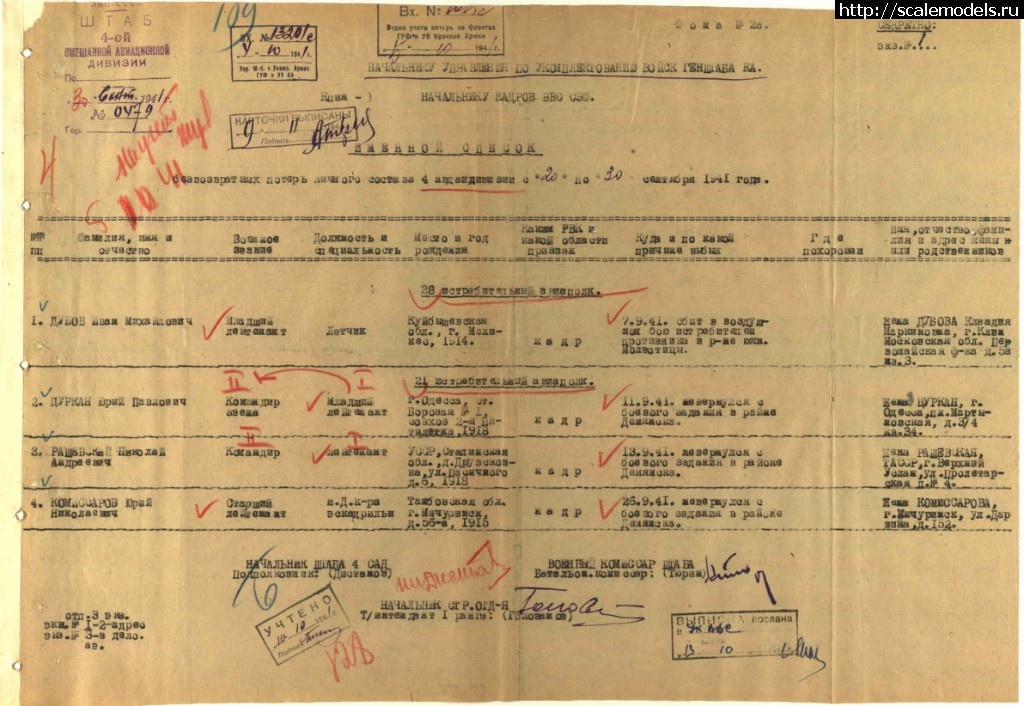 http://scalemodels.ru
ШТАБ
4-ой
СМЕШАННОЙ АВИАЦИОННОЙ
ДИВИЗИИ
По
30 1941 г.
№ 0479
Гор.
109
Вх. №
10 1941
ГУФ и УВ КА
Вх. №
Отдел учета потерь на фронтах
ГУФ и УВ Красной Армии
10 1941
Фома № 2а.
СЕКРЕТНО:
экз.№ 1
НАЧАЛЬНИКУ УПРАВЛЕНИЯ ПО УКОМПЛЕКТОВАНИЮ ВОЙСК ГЕНШТАБА КА.
Копия -) НАЧАЛЬНИКУ КАДРОВ ВВС СЗФ.
КАРТОЧКИ ВЫПИСАНЫ
9 11
Подпись
4
ИМЕННОЙ СПИСОК
безвозвратных потерь личного состава 4 авиадивизии с "20" по "30 сентября 1941 года.
№№ пп
Фамилия, имя и отчество
Военное звание
Должность и специальность
Место и год рождения
Каким РВК и какой области призван
Куда и по какой причине выбыл
Где похоронен
Имя, отчество, фамилия и адрес жены или родственников
28 истребительный авиаполк.
1. ДУБОВ Иван Михайлович
Младший лейтенант
Летчик
Куйбышевская обл., г. Мелекес, 1914.
кадр
7.9.41. сбит в воздушном бою истребителем противника в р-не юж. Молвотицы.
Жена ДУБОВА Клавдия
Маркиновна, г.Клин
Московская обл. Первомайская ф-ка д.58
кв.3.
21 истребительный авиаполк.
II I
2. ДУРКАН Юрий Павлович
Командир звена
Младший лейтенант
г.Одесса, ст. Боровая № 1, совхоз 2-я Пятилетка, 1918
кадр
11.9.41. невернулся с боевого задания в районе Демянска.
Жена ДУРКАН, г.
Одесса,пл.Мартыновская, д.3/4
кв.34.
II I
3. РАШЕВСКИЙ Николай Андреевич
Командир
лейтенант
УССР,Сталинская
обл.
д.6, 1918
кадр
13.9.41. невернулся с боевого задания в районе Демянска.
Жена РАШЕВСКАЯ,
ТАССР,г.Верхний
Услон,ул.Пролетарская д.№ 4.
4. КОМИССАРОВ Юрий Николаевич
Старший лейтенант
и.д.к-ра эскадрильи
Тамбовская обл. г.Мичуринск, д.56-а, 1915
кадр
26.9.41. невернулся с боевого задания в районе Демянска.
Жена КОМИССАРОВА,
г.Мичуринск, ул.Дарвина, д.152.
НАЧАЛЬНИК ШТАБА 4 САД
Подполковник:
ВОЕННЫЙ КОМИССАР ШТАБА
Батальон.комиссар:
НАЧАЛЬНИК СТР.ОТД-Я
Т/интендант I ранга:
УЧТЕНО
10 10 1941 г.
Подпись
отп.3 экз.
экз.№ 1-2-адрес
экз.№ 3-в дело.
ав.
ВЫПИСКА послана
в
13 10